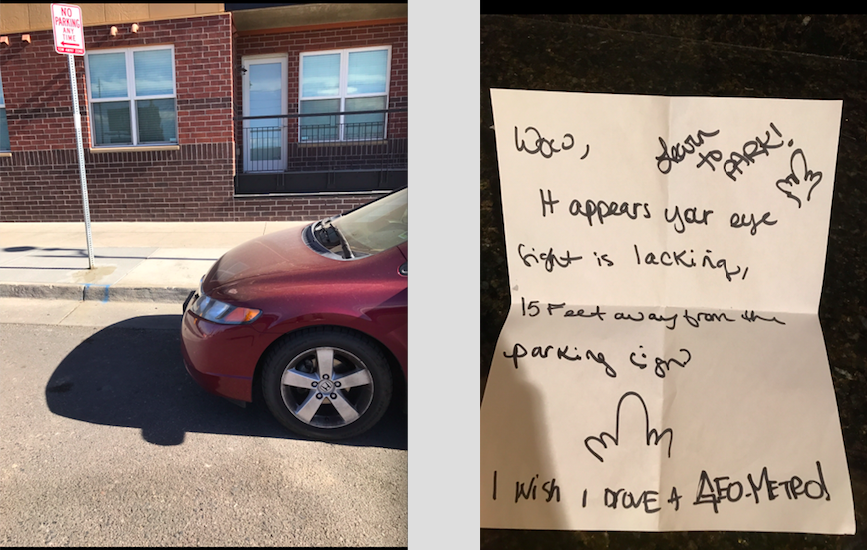 NO
PARKING
ANY
TIME
Wow,
learn
to
PARK!
It appears your eye
sight is lacking,
15 Feet away from the
parking sign
I WISH I DROVE A GEO-METRO!